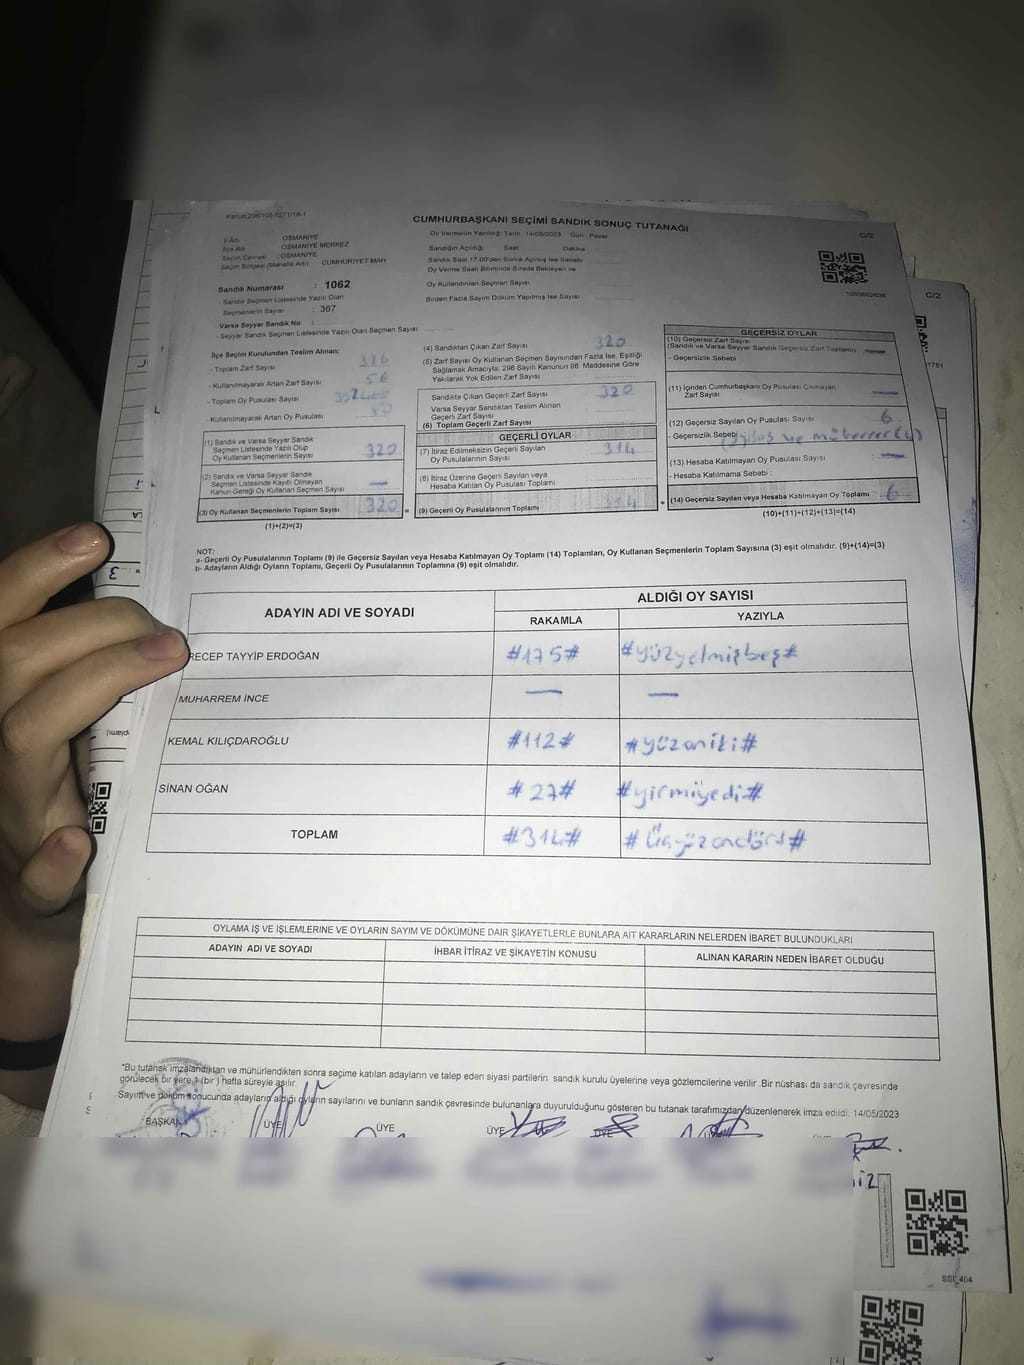 CUMHURBAŞKANI SEÇİMİ SANDIK SONUÇ TUTANAĞI
C/2
Oy Vermenin Yapıldığı Tarih 14/05/2023 Gün : Pazar
İl Adı : OSMANİYE
İlçe Adı : OSMANİYE MERKEZ
Seçim Çevresi : OSMANİYE
Seçim Bölgesi (Mahalle Adı) : CUMHURİYET MAH
Sandığın Açıldığı Saat Dakika
Sandık Saat 17.00'den Sonra Açılmış İse Sebebi
Oy Verme Saati Bitiminde Sırada Bekleyen ve
Oy Kullandırılan Seçmen Sayısı
Birden Fazla Sayım Döküm Yapılmış İse Sayısı
Sandık Numarası : 1062
- Sandık Seçmen Listesinde Yazılı Olan
Seçmenlerin Sayısı : 367
Varsa Seyyar Sandık No :
- Seyyar Sandık Seçmen Listesinde Yazılı Olan Seçmen Sayısı
İlçe Seçim Kurulundan Teslim Alınan;
- Toplam Zarf Sayısı
- Kullanılmayarak Artan Zarf Sayısı 56
- Toplam Oy Pusulası Sayısı
- Kullanılmayarak Artan Oy Pusulası
(1) Sandık ve Varsa Seyyar Sandık
Seçmen Listesinde Yazılı Olup
Oy Kullanan Seçmenlerin Sayısı 320
(2) Sandık ve Varsa Seyyar Sandık
Seçmen Listesinde Kayıtlı Olmayan
Kanun Gereği Oy Kullanan Seçmen Sayısı —
(3) Oy Kullanan Seçmenlerin Toplam Sayısı 320
(1)+(2)=(3)
(4) Sandıktan Çıkan Zarf Sayısı 320
(5) Zarf Sayısı Oy Kullanan Seçmen Sayısından Fazla İse, Eşitliği
Sağlamak Amacıyla, 298 Sayılı Kanunun 98. Maddesine Göre
Yakılarak Yok Edilen Zarf Sayısı
Sandıkta Çıkan Geçerli Zarf Sayısı 320
Varsa Seyyar Sandıktan Teslim Alınan
Geçerli Zarf Sayısı
(6) Toplam Geçerli Zarf Sayısı
GEÇERLİ OYLAR
(7) İtiraz Edilmeksizin Geçerli Sayılan
Oy Pusulalarının Sayısı 314
(8) İtiraz Üzerine Geçerli Sayılan veya
Hesaba Katılan Oy Pusulası Toplamı
(9) Geçerli Oy Pusulalarının Toplamı 314
GEÇERSİZ OYLAR
(10) Geçersiz Zarf Sayısı
(Sandık ve Varsa Seyyar Sandık Geçersiz Zarf Toplamı) —
- Geçersizlik Sebebi
(11) İçinden Cumhurbaşkanı Oy Pusulası Çıkmayan
Zarf Sayısı —
(12) Geçersiz Sayılan Oy Pusulası Sayısı 6
- Geçersizlik Sebebi
(13) Hesaba Katılmayan Oy Pusulası Sayısı —
- Hesaba Katılmama Sebebi :
(14) Geçersiz Sayılan veya Hesaba Katılmayan Oy Toplamı 6
(10)+(11)+(12)+(13)=(14)
NOT:
a- Geçerli Oy Pusulalarının Toplamı (9) ile Geçersiz Sayılan veya Hesaba Katılmayan Oy Toplamı (14) Toplamları, Oy Kullanan Seçmenlerin Toplam Sayısına (3) eşit olmalıdır. (9)+(14)=(3)
b- Adayların Aldığı Oyların Toplamı, Geçerli Oy Pusulalarının Toplamına (9) eşit olmalıdır.
ADAYIN ADI VE SOYADI ALDIĞI OY SAYISI
RAKAMLA YAZIYLA
RECEP TAYYİP ERDOĞAN #175# #yüzyetmişbeş#
MUHARREM İNCE — —
KEMAL KILIÇDAROĞLU #112# #yüzoniki#
SİNAN OĞAN #27# #yirmiyedi#
TOPLAM #314# #Üçyüzondört#
OYLAMA İŞ VE İŞLEMLERİNE VE OYLARIN SAYIM VE DÖKÜMÜNE DAİR ŞİKAYETLERLE BUNLARA AİT KARARLARIN NELERDEN İBARET BULUNDUKLARI
ADAYIN ADI VE SOYADI İHBAR İTİRAZ VE ŞİKAYETİN KONUSU ALINAN KARARIN NEDEN İBARET OLDUĞU
"Bu tutanak imzalandıktan ve mühürlendikten sonra seçime katılan adayların ve talep eden siyasi partilerin sandık kurulu üyelerine veya gözlemcilerine verilir .Bir nüshası da sandık çevresinde
görülecek bir yere 1 (bir ) hafta süreyle asılır.
Sayım ve döküm sonucunda adayların aldığı oyların sayılarını ve bunların sandık çevresinde bulunanlara duyurulduğunu gösteren bu tutanak tarafımızdan düzenlenerek imza edildi. 14/05/2023
BAŞKAN ÜYE ÜYE ÜYE ÜYE
C/2